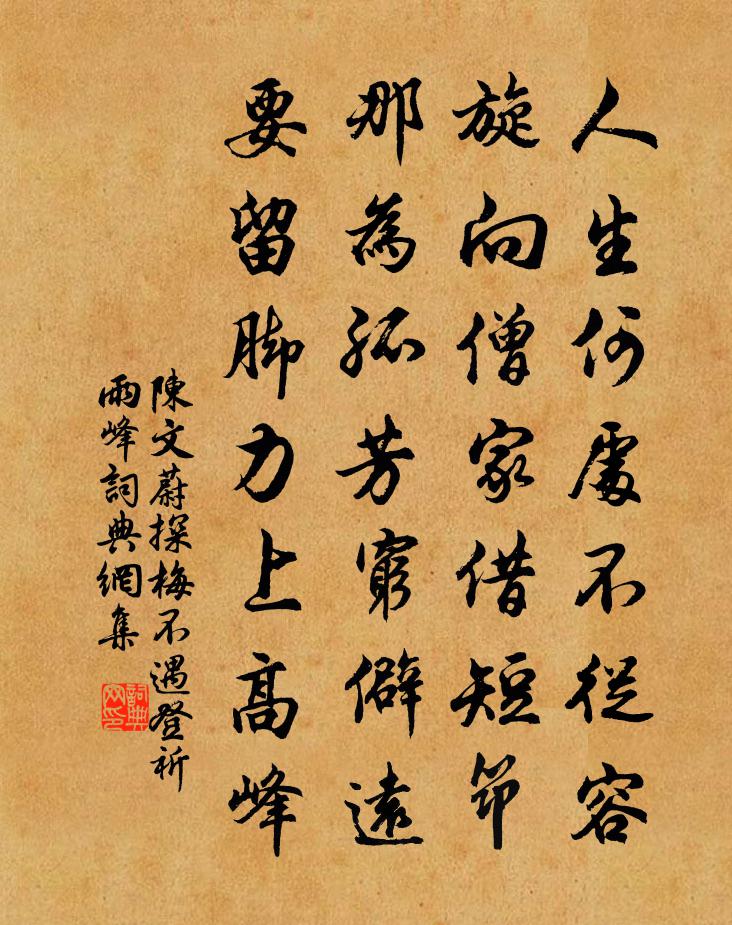 人生何處不從容
旋向僧家借短筇
那為孤芳窮僻遠
要留脚力上高峰
陳文蔚探梅不遇登祈
雨峰詞典網集
詞典
网印